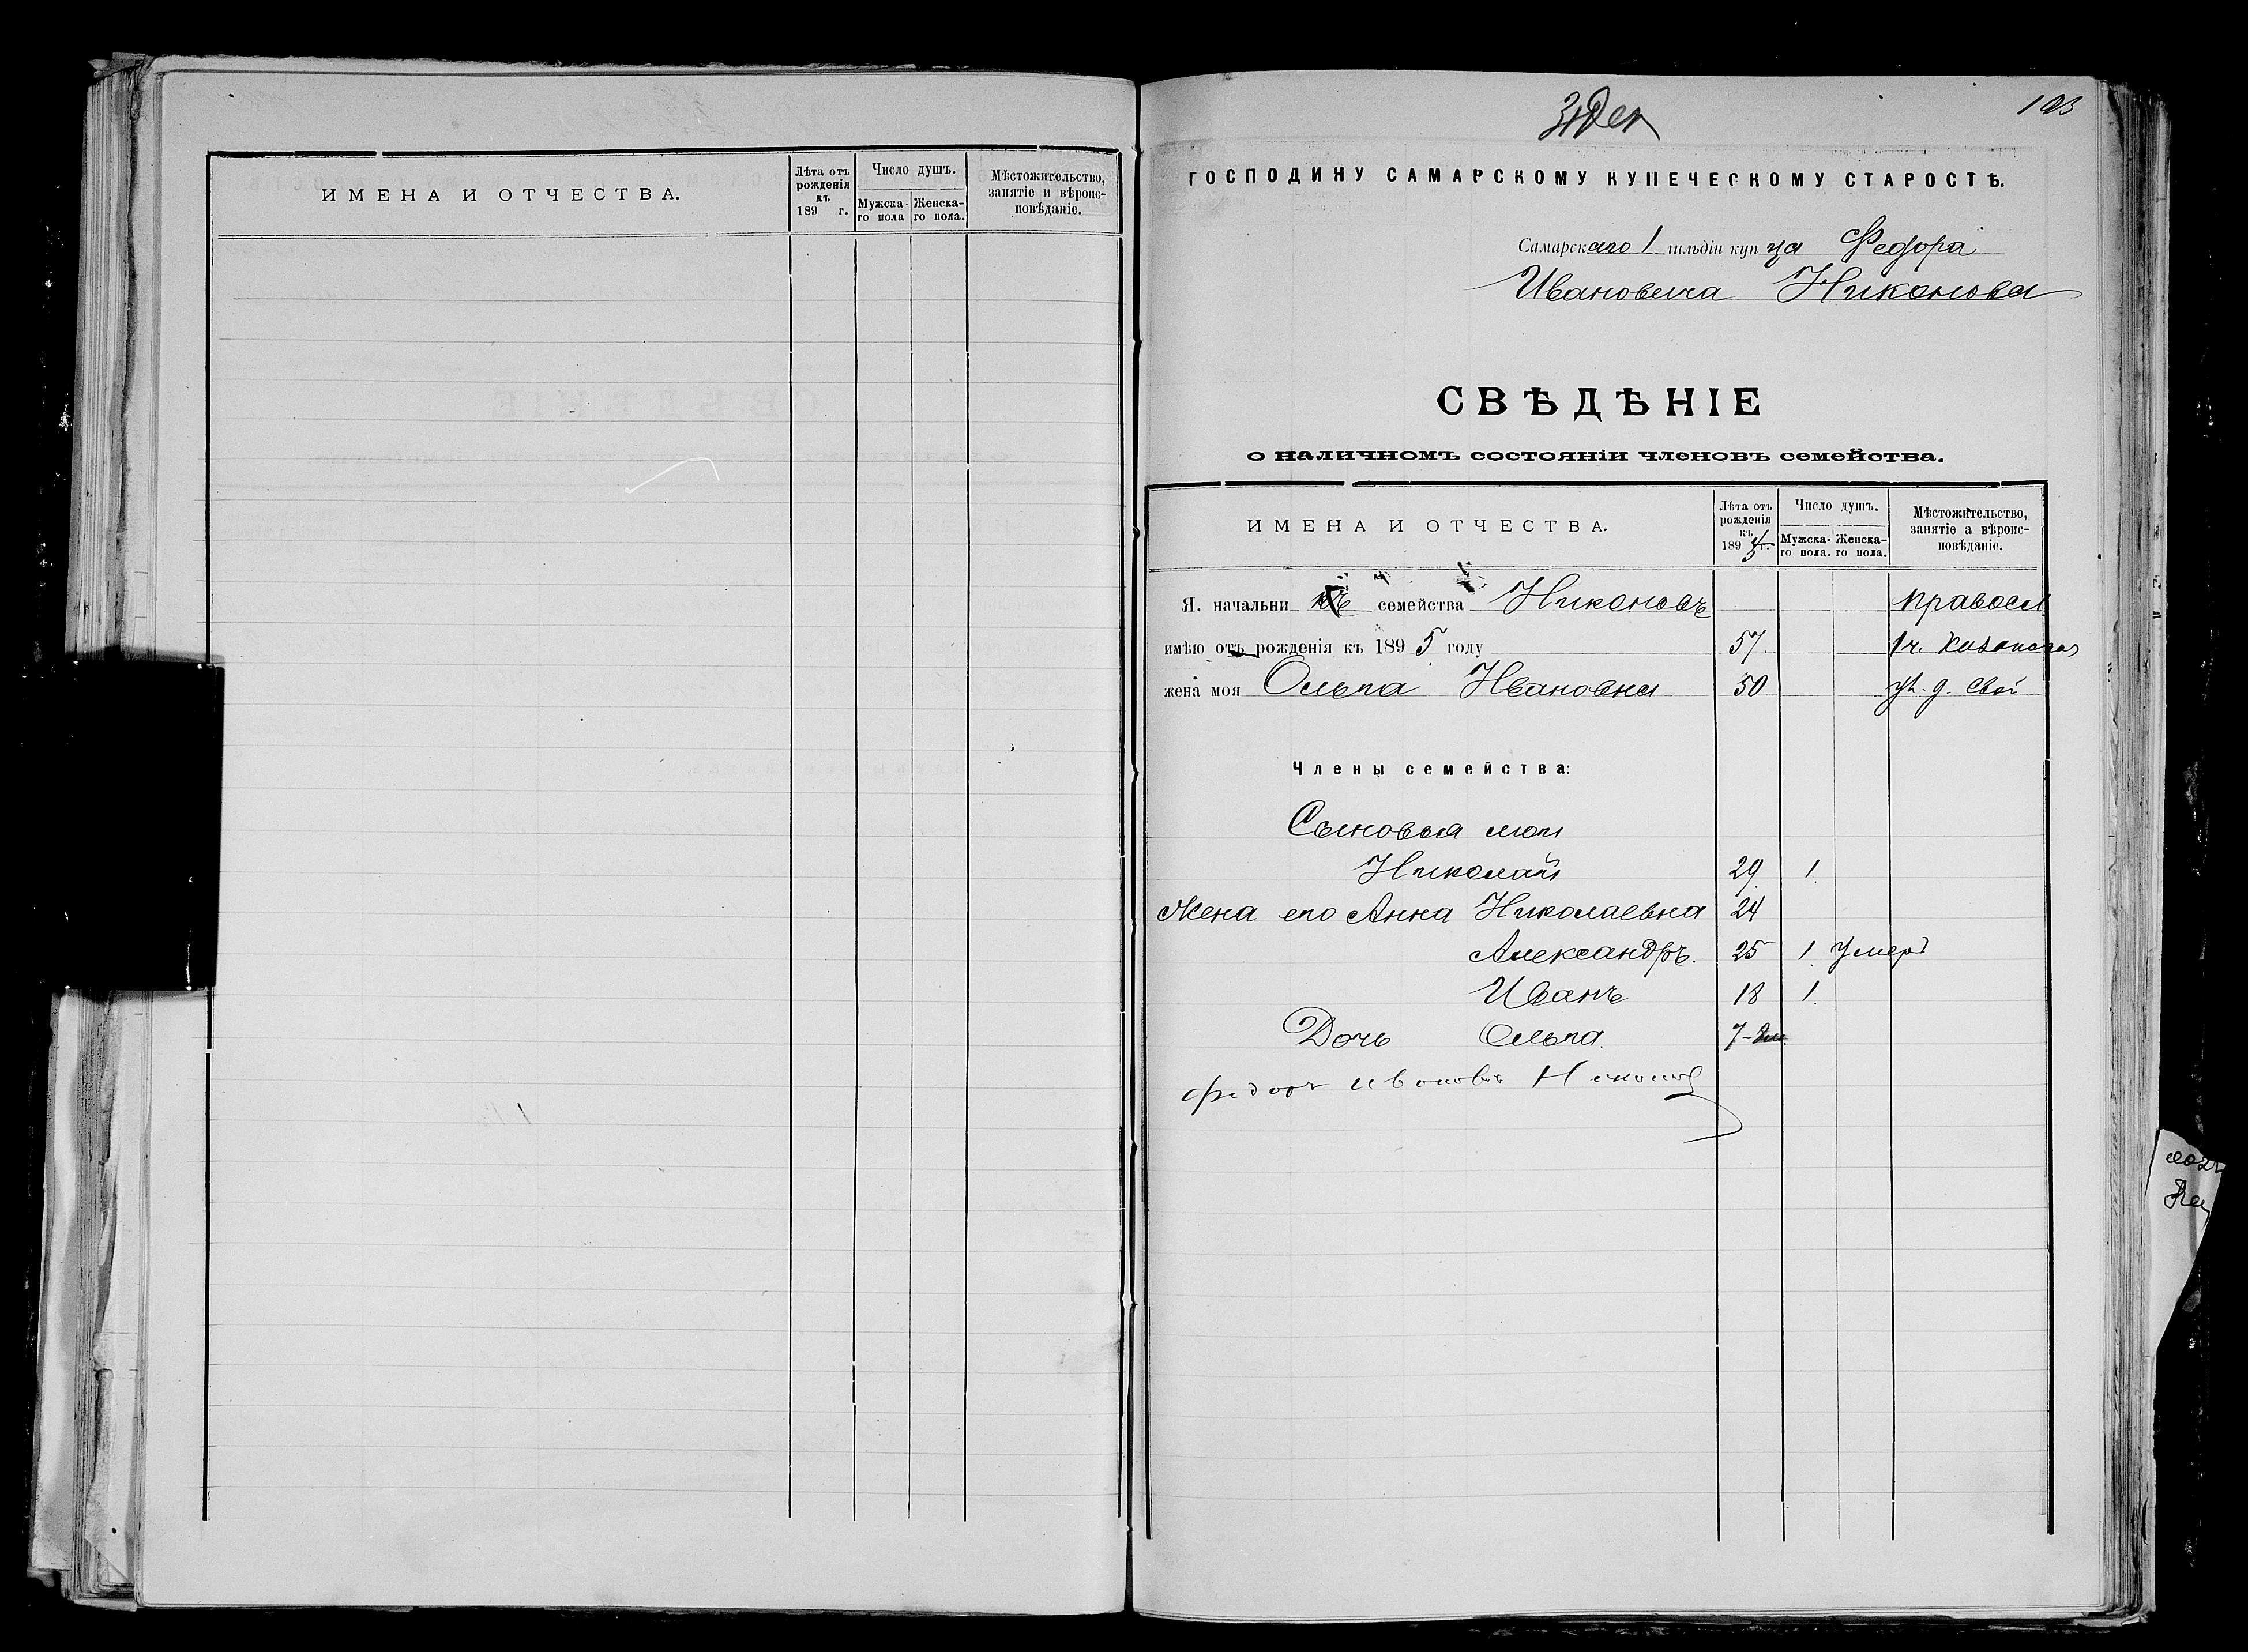 ИМЕНА И ОТЧЕСТВА.
Лѣта отъ рожденія къ 189 г.
Число душъ.
Мужска-го пола
Женска-го пола.
Мѣстожительство, занятіе и вѣроис-повѣданіе.
193
ГОСПОДИНУ САМАРСКОМУ КУПЕЧЕСКОМУ СТАРОСТѢ.
Самарскаго 1 гильдіи купца Федора
Ивановича Никонова
СВѢДѢНІЕ
о наличномъ состояніи членовъ семейства.
ИМЕНА И ОТЧЕСТВА.
Лѣта отъ рожденія къ 1895 г.
Число душъ.
Мужска-го пола.
Женска-го пола.
Мѣстожительство, занятіе а вѣроис-повѣданіе.
Я. начальникъ семейства Никоновъ правосл
имѣю отъ рожденія къ 1895 году 57. 1 ч. Казанская
жена моя Ольга Ивановна 50 ул. д. свой
Члены семейства:
Сыновья мои
Николай 29. 1.
Жена его Анна Николаевна 24
Александръ. 25 1. Умеръ
Иванъ 18 1.
Дочь Ольга. 7
Федоръ Ивановъ Никоновъ